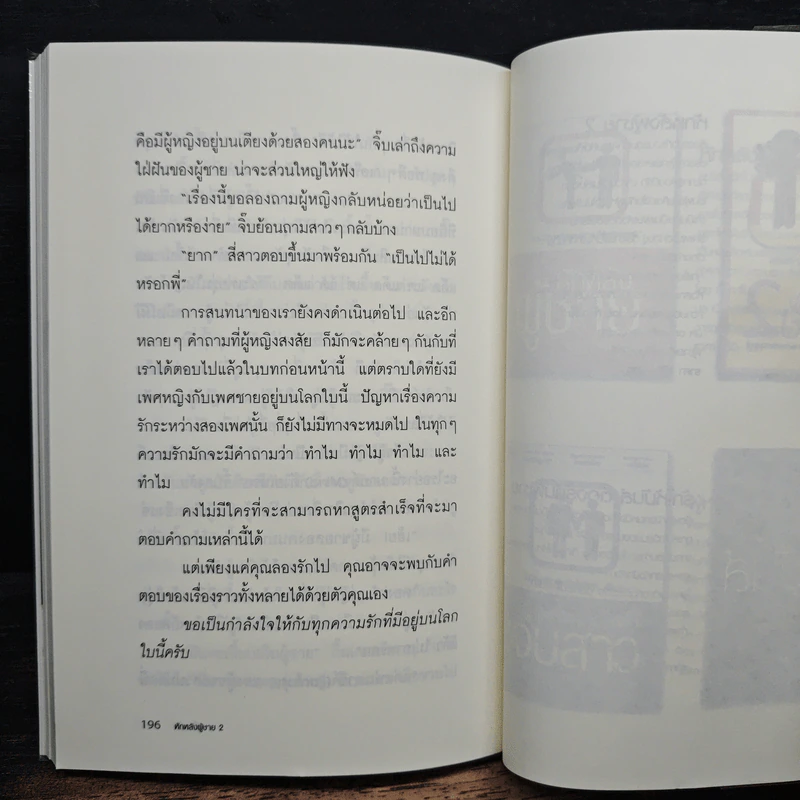 คือมีผู้หญิงอยู่บนเตียงด้วยสองคนนะ" จิ๊บเล่าถึงความ
ใฝ่ฝันของผู้ชาย น่าจะส่วนใหญ่ให้ฟัง
"เรื่องนี้ขอลองถามผู้หญิงกลับหน่อยว่าเป็นไป
ได้ยากหรือง่าย" จิ๊บย้อนถามสาวๆ กลับบ้าง
"ยาก" สี่สาวตอบขึ้นมาพร้อมกัน "เป็นไปไม่ได้
หรอกพี่"
การสนทนาของเรายังคงดำเนินต่อไป และอีก
หลายๆ คำถามที่ผู้หญิงสงสัย ก็มักจะคล้ายๆ กันกับที่
เราได้ตอบไปแล้วในบทก่อนหน้านี้ แต่ตราบใดที่ยังมี
เพศหญิงกับเพศชายอยู่บนโลกใบนี้ ปัญหาเรื่องความ
รักระหว่างสองเพศนั้น ก็ยังไม่มีทางจะหมดไป ในทุกๆ
ความรักมักจะมีคำถามว่า ทำไม ทำไม ทำไม และ
ทำไม
คงไม่มีใครที่จะสามารถหาสูตรสำเร็จที่จะมา
ตอบคำถามเหล่านี้ได้
แต่เพียงแค่คุณลองรักไป คุณอาจจะพบกับคำ
ตอบของเรื่องราวทั้งหลายได้ด้วยตัวคุณเอง
ขอเป็นกำลังใจให้กับทุกความรักที่มีอยู่บนโลก
ใบนี้ครับ
196 หักหลังผู้ชาย 2